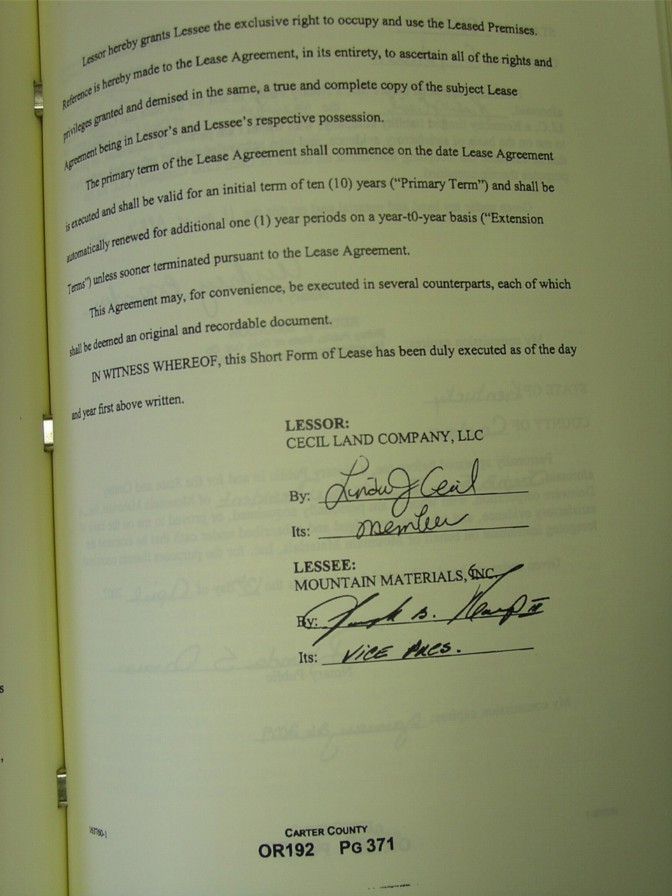 Lessor hereby grants Lessee the exclusive right to occupy and use the Leased Premises.
Reference is hereby made to the Lease Agreement, in its entirety, to ascertain all of the rights and
privileges granted and demised in the same, a true and complete copy of the subject Lease
Agreement being in Lessor's and Lessee's respective possession.
The primary term of the Lease Agreement shall commence on the date Lease Agreement
is executed and shall be valid for an initial term of ten (10) years ("Primary Term") and shall be
automatically renewed for additional one (1) year periods on a year-t0-year basis ("Extension
Terms") unless sooner terminated pursuant to the Lease Agreement.
This Agreement may, for convenience, be executed in several counterparts, each of which
shall be deemed an original and recordable document.
IN WITNESS WHEREOF, this Short Form of Lease has been duly executed as of the day
and year first above written.
LESSOR:
CECIL LAND COMPANY, LLC
By: Linda J Cecil
Its: member
LESSEE:
MOUNTAIN MATERIALS, INC
By: B. II
Its: VICE PRES.
CARTER COUNTY
OR192 PG 371